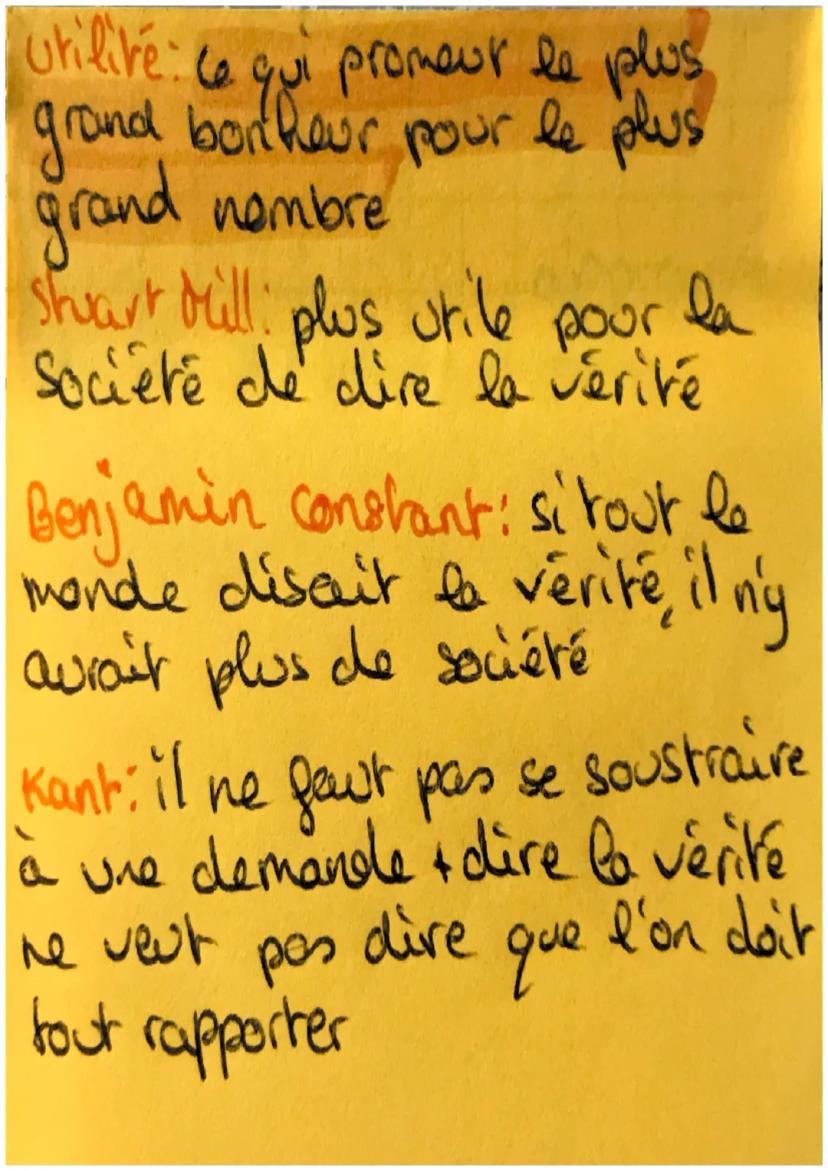 Utilité: ce qui promeut le plus
grand bonheur pour le plus
grand nombre
Stuart Mill: plus utile pour la
société de dire la vérité
Benjamin Constant: si tout le
monde disait la vérité, il n'y
aurait plus de société
Kant: il ne faut pas se soustraire
à une demande + dire la vérité
ne veut pas dire que l'on doit
tout rapporter